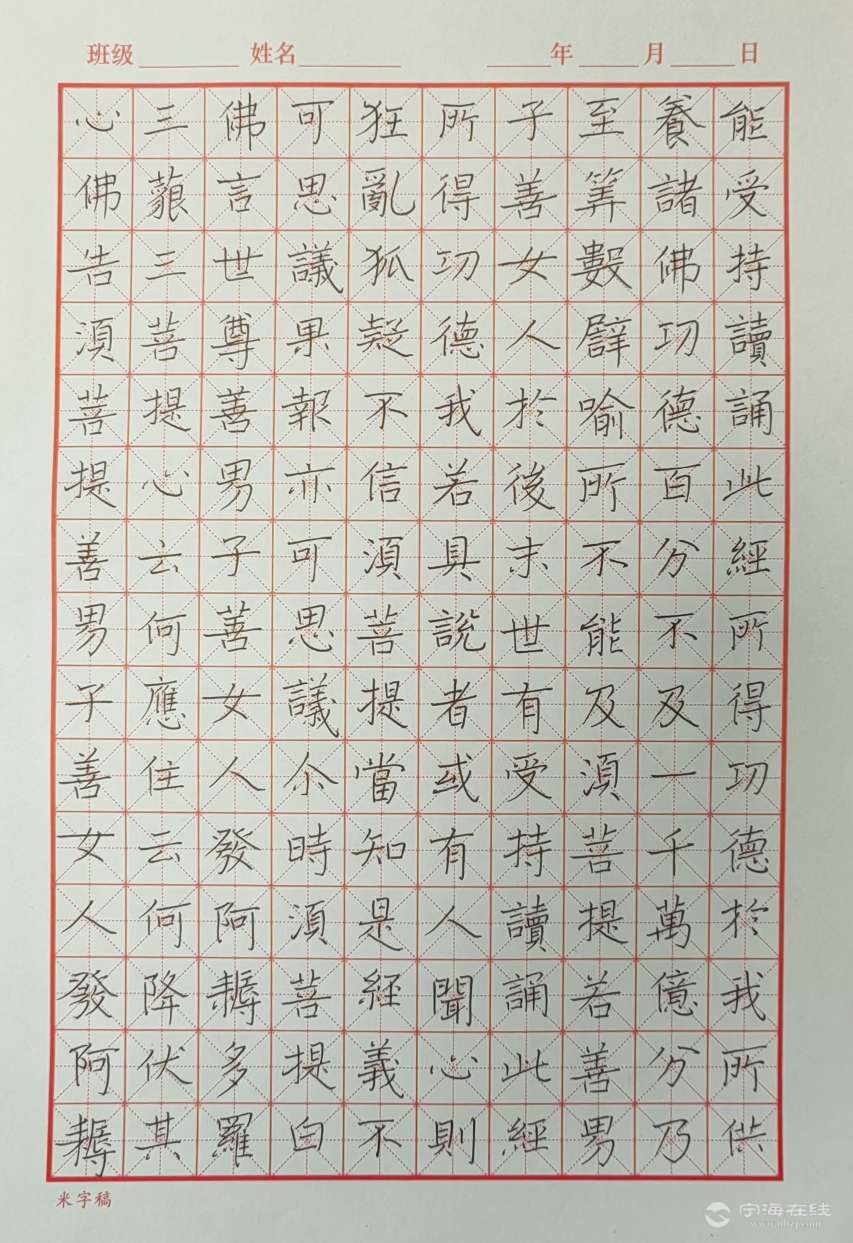 班级 姓名 年 月 日
能受持讀誦此經所得功德於我所供
養諸佛功德百分不及一千萬億分乃
至筭數譬喻所不能及須菩提若善男
子善女人於後末世有受持讀誦此經
所得功德我若具說者或有人聞心則
狂亂狐疑不信須菩提當知是經義不
可思議果報亦可思議尒時須菩提白
佛言世尊善男子善女人發阿耨多羅
三藐三菩提心云何應住云何降伏其
心佛告須菩提善男子善女人發阿耨
米字稿
宁海在线
www.nhzj.com